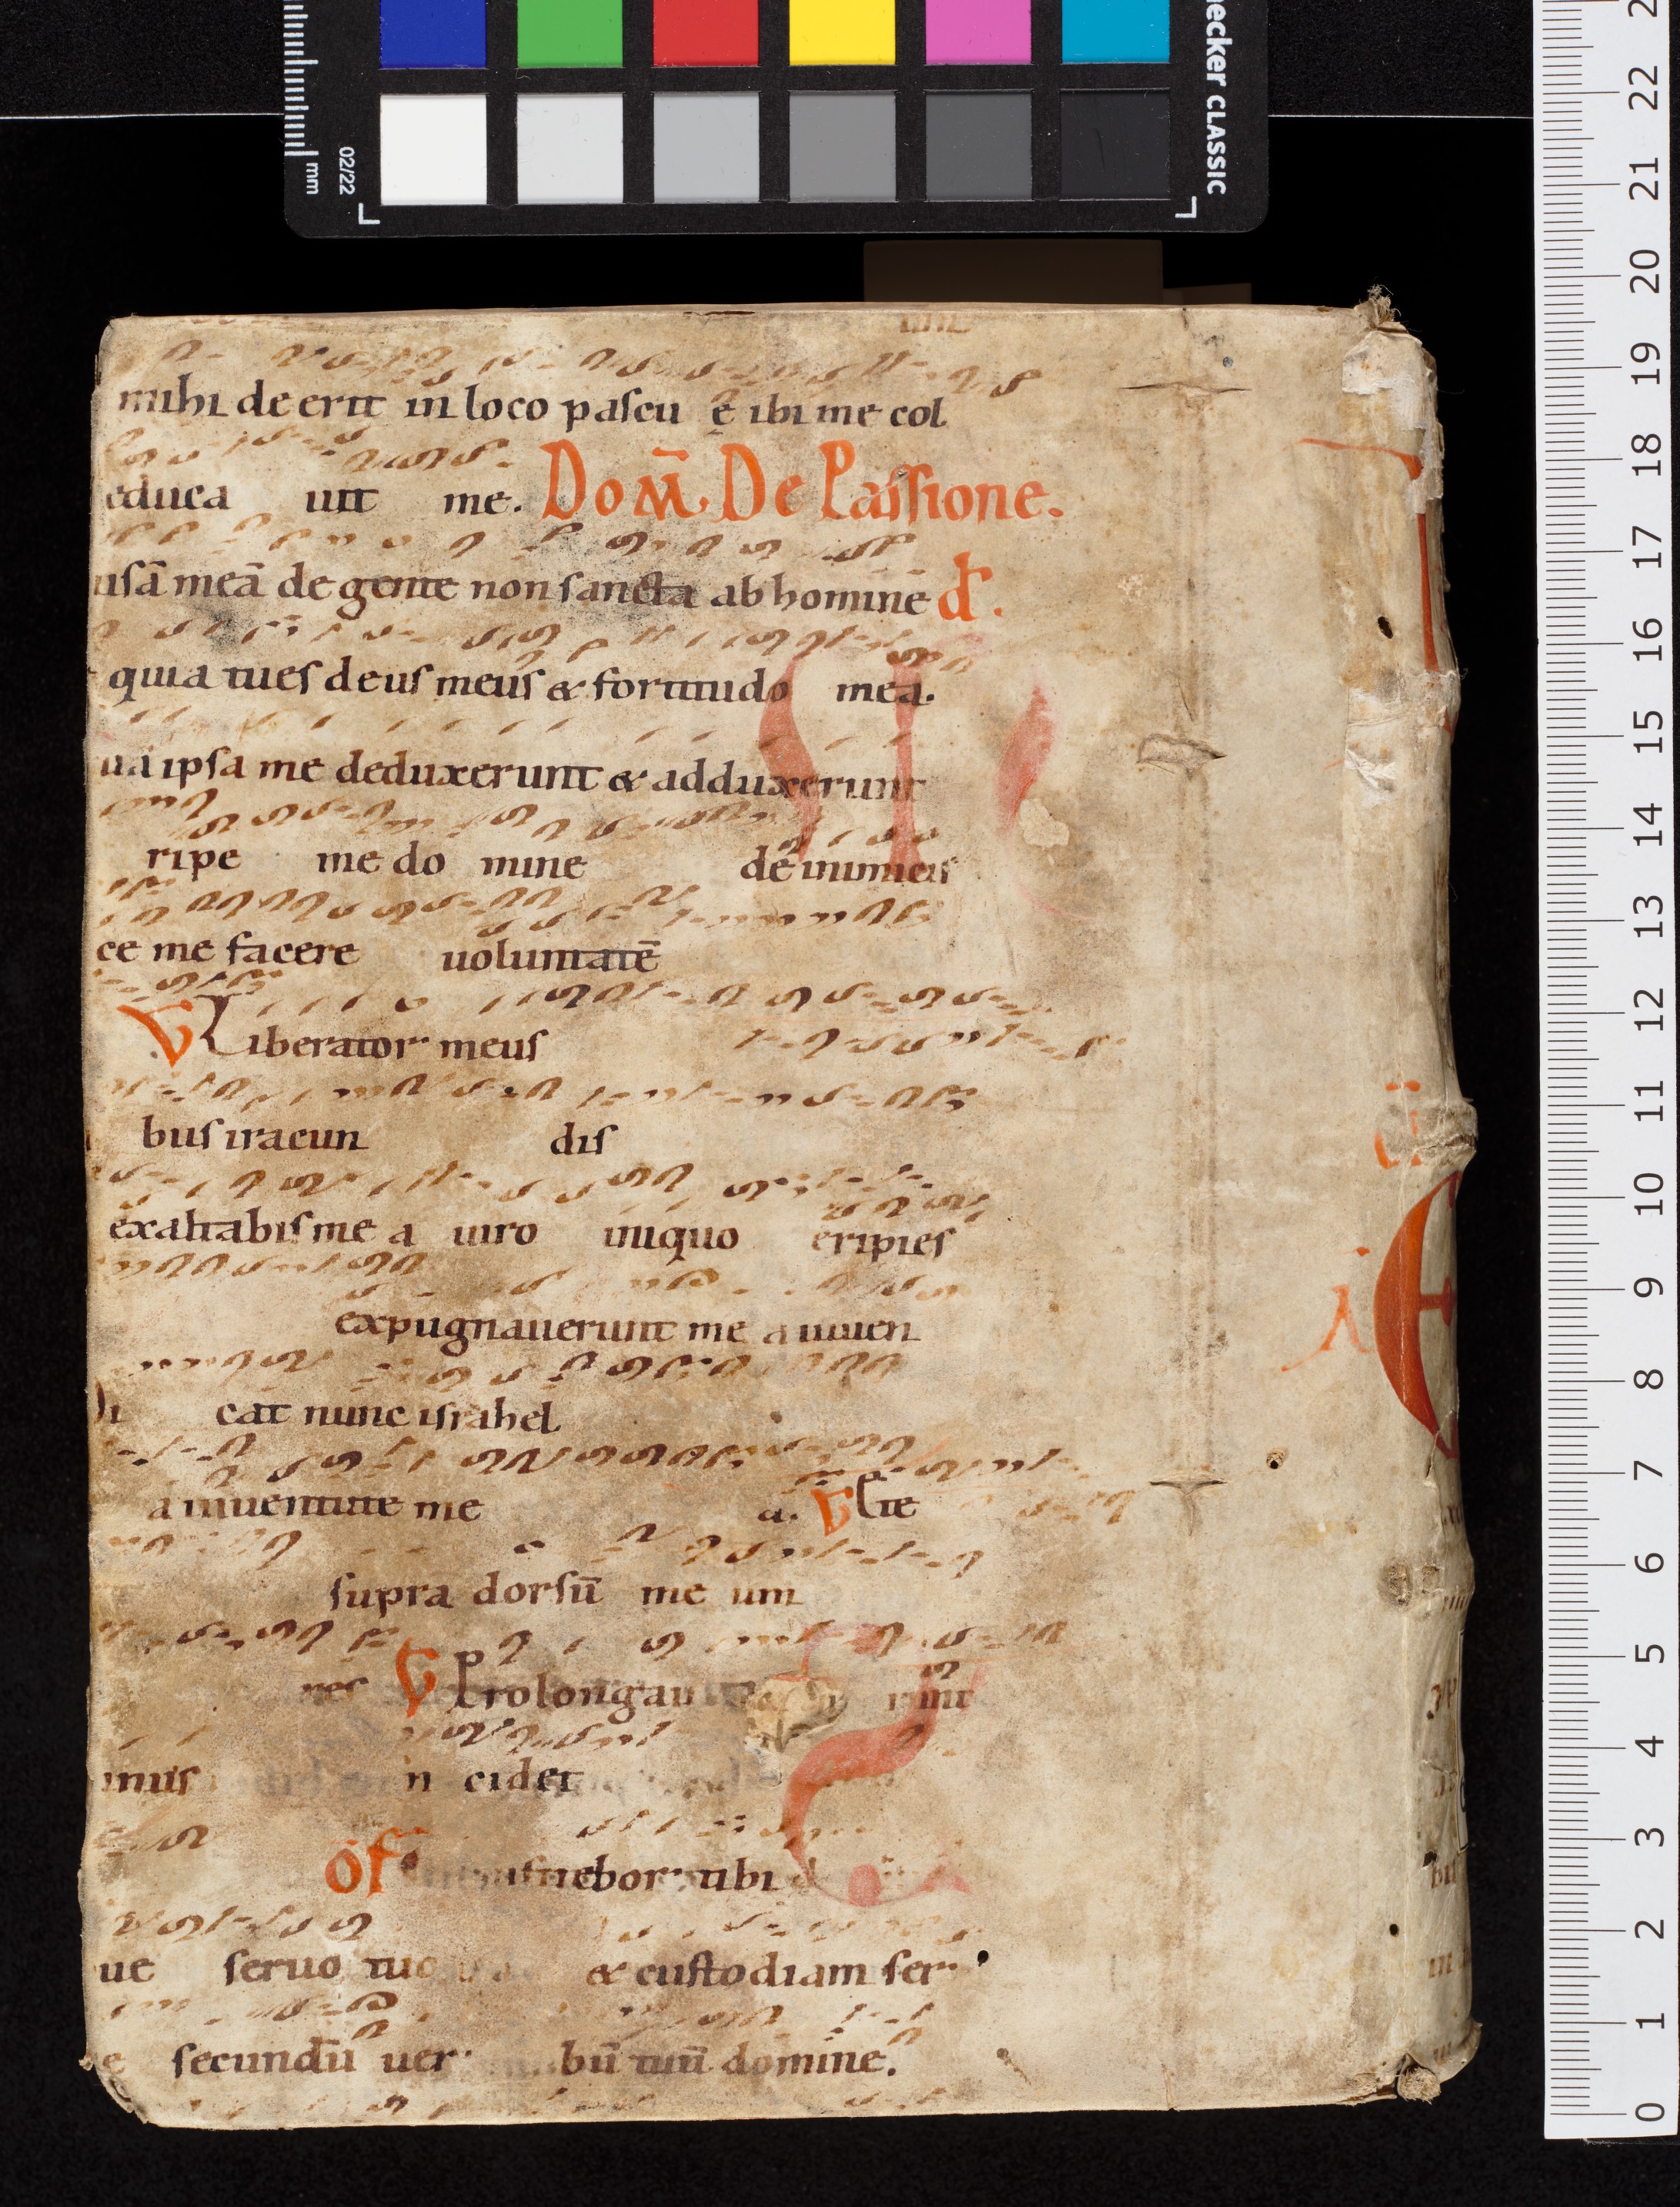 mihi deerit in loco pascuę ibi me col
educa uit me. Dom̄ De Passione.
usā meā de gente non sancta ab homine d.
quia tu es deus meus & fortitudo mea.
ua ipsa me deduxerunt & adduxerunt
ripe me do mine de inimicis
ce me facere uoluntatē
V Liberator meus
bus iracun dis
exaltabis me a uiro iniquo eripies
expugnauerunt me a iuuen
cat nunc israhel
a iuuentute me a. V &e
supra dorsū me um
V Prolongau runt
mus n cidet
of tibi
ue seruo tuo & custodiam ser
e secundū uer bū tuū domine.
mm
02/22
ecker CLASSIC
22
21
20
19
18
17
16
15
14
13
12
11
10
9
8
7
6
5
4
3
2
1
0